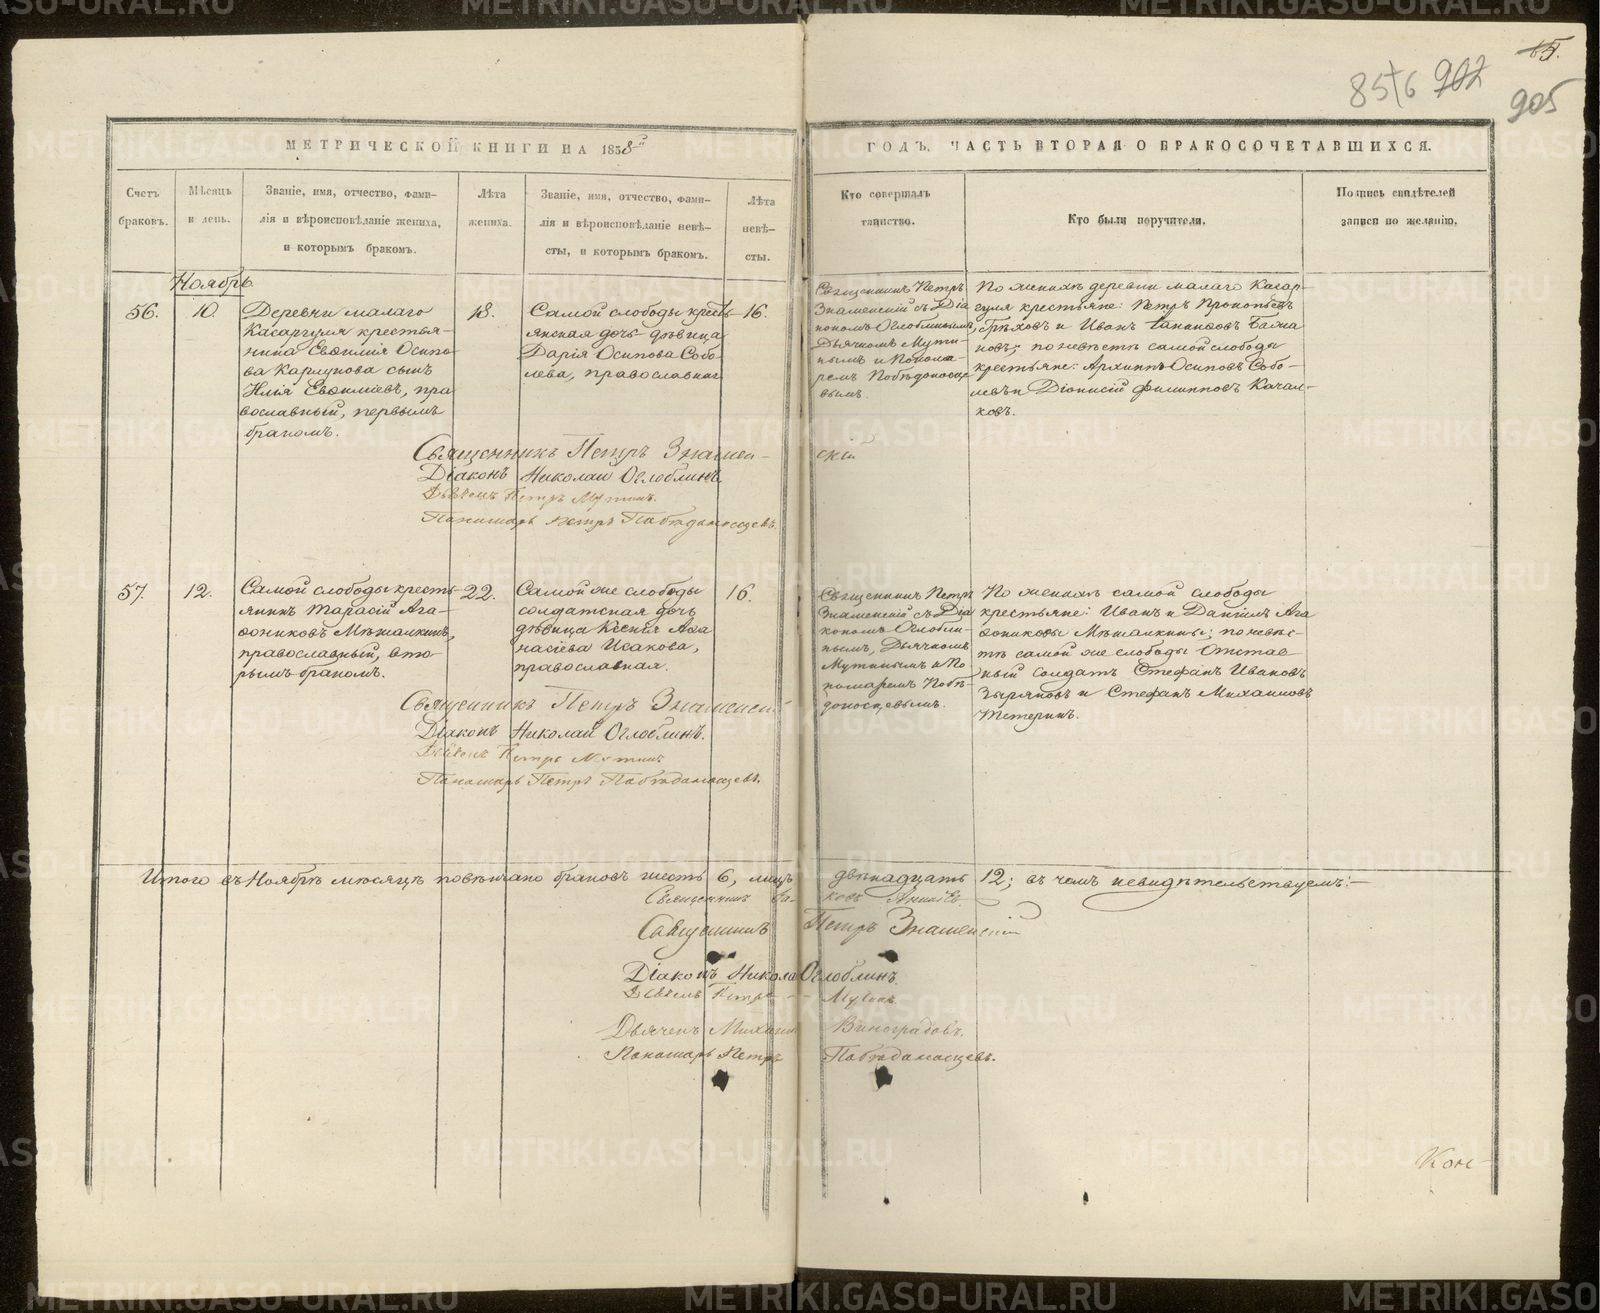 15.
85+6 902
905
МЕТРИЧЕСКОЙ КНИГИ НА 1858й
ГОДЪ, ЧАСТЬ ВТОРАЯ О БРАКОСОЧЕТАВШИХСЯ.
Счетъ браковъ.
Мѣсяцъ и день.
Званіе, имя, отчество, фами-
лія и вѣроисповѣданіе жениха,
и которымъ бракомъ.
Лѣта жениха.
Званіе, имя, отчество, фами-
лія и вѣроисповѣданіе невѣ-
сты, и которымъ бракомъ.
Лѣта невѣ-
сты.
Кто совершалъ
таинство.
Кто были поручители.
Подпись свидѣтелей
записи по желанію.
Ноябрь
56.
10.
Деревни малаго
Касаргуля крестья-
нина Евѳимія Осипо-
ва Карпукова сынъ
Илія Евѳиміевъ, пра
вославный, первымъ
бракомъ.
18.
Самой слободы крестъ
янская дочь дѣвица
Дарія Осипова Собо-
лева, православная
16.
Священникъ Петръ
Знаменскій съ Діа
кономъ Оглоблинымъ,
Дьячкомъ Мути-
нымъ и Понома-
ремъ Побѣдоносце
вымъ.
По женихѣ деревни малаго Касар-
гуля крестьяне: Петръ Прокопьевъ
Грѣховъ и Иванъ
новъ; по невѣстѣ самой слободы
крестьяне: Архипъ Осиповъ Собо-
левъ и Діонисій Филипповъ Качал-
ковъ.
Священникъ Петръ Знамен-
скій
Діаконъ Николай Оглоблинъ
Дьячекъ Петръ Мутинъ.
Панамарь Петръ Побѣданосцевъ.
57.
12.
Самой слободы кресть-
янинъ Тарасій Ага-
ѳониковъ Мѣшалкинъ,
православный, вто-
рымъ бракомъ.
22.
Самой же слободы
солдатская дочь
дѣвица Ксенія Аѳа
насіева Исакова,
православная.
16.
Священникъ Петръ
Знаменскій съ Діа
кономъ Оглобли-
нымъ, Дьячкомъ
Мутинымъ и По-
номаремъ Побѣ-
доносцевымъ.
По женихѣ самой слободы
крестьяне: Иванъ и Даніилъ Ага
ѳониковы Мѣшалкины; по невѣс-
тѣ самой же слободы Отстав
ный солдатъ Стефанъ Ивановъ
Зыряновъ и Стефанъ Михаиловъ
Тетеринъ.
Священникъ Петръ Знаменскій
Діаконъ Николай Оглоблинъ.
Дьячекъ Петръ Мутинъ
Панамарь Петръ Побѣданосцевъ.
Итого въ Ноябрѣ мѣсяцѣ повѣнчано браковъ шесть 6, лицъ двѣнадцать 12; въ чемъ и свидѣтельствуемъ:
Священникъ
Священникъ Петръ Знаменскій
Діаконъ Николай Оглоблинъ.
Дьячекъ Петръ Мутинъ
Дьячекъ Михаилъ Виноградовъ.
Панамарь Петръ Побѣданосцевъ.
METRIKI.GASO-URAL.RU